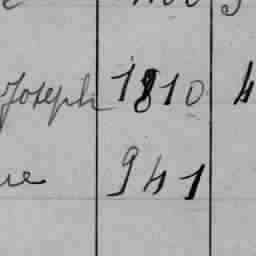 Joseph 1810 4
ue 941